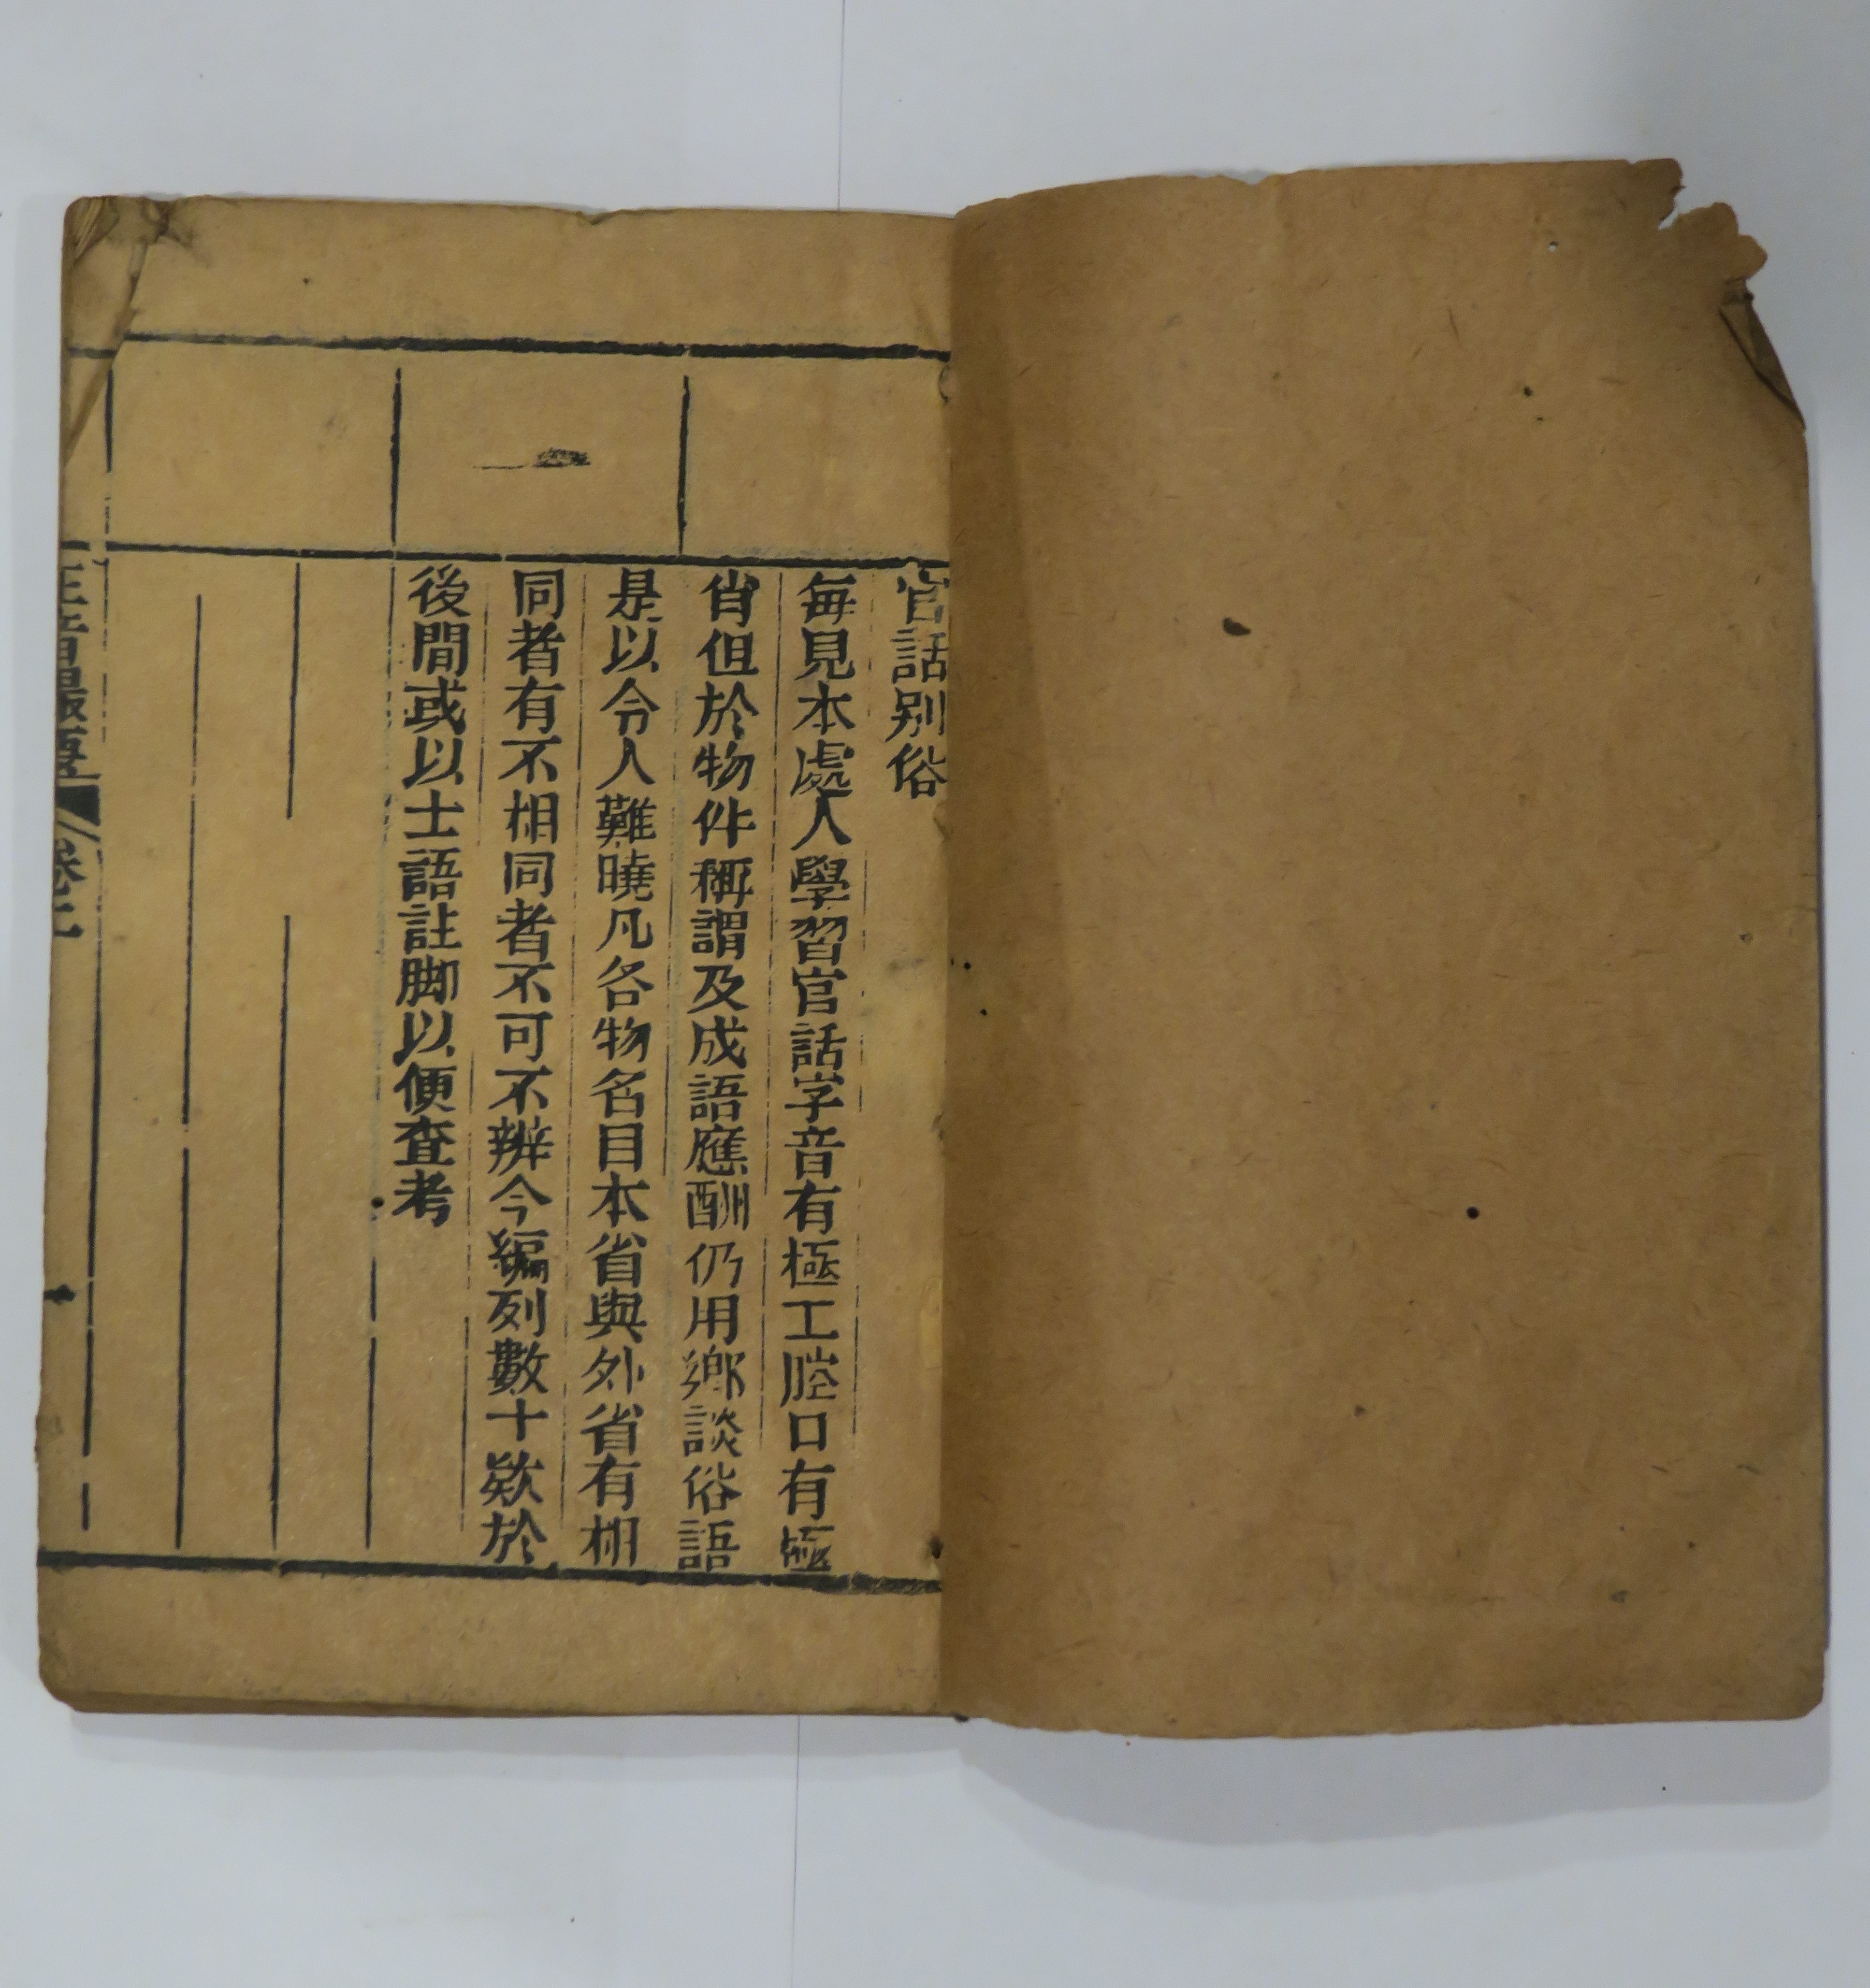 官話别俗
每見本處人學習官話字音有極工腔口有極
肖但於物件稱謂及成語應酬仍用鄉談俗語
是以令人難曉凡各物名目本省與外省有相
同者有不相同者不可不辨今編列數十欵於
後間或以士語註脚以便查考
正音撮要
卷二